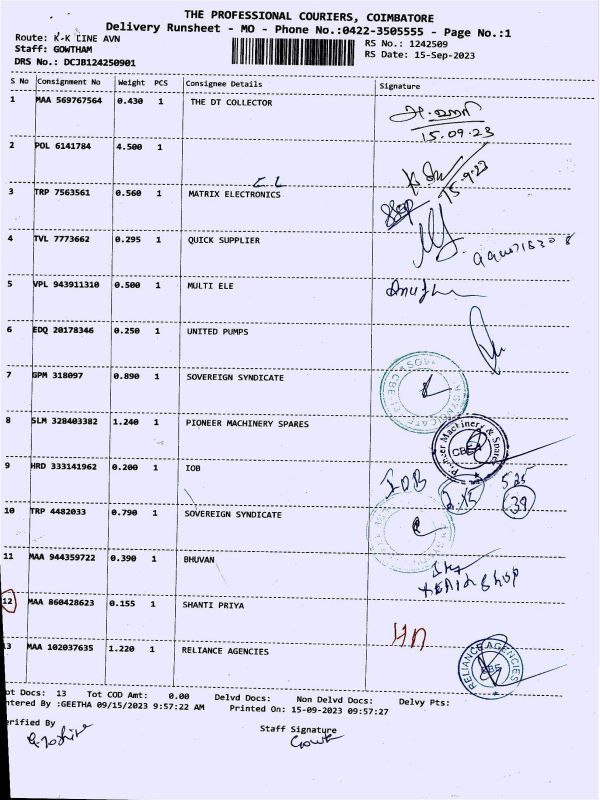 THE PROFESSIONAL COURIERS, COIMBATORE
Delivery Runsheet - MO - Phone No.:0422-3505555 - Page No.:1
Route: K-K LINE AVN
RS No.: 1242509
Staff: GOWTHAM
RS Date: 15-Sep-2023
DRS No.: DCJB124250901
S No Consignment No Weight PCS Consignee Details Signature
1 MAA 569767564 0.430 1 THE DT COLLECTOR
15.09.23
2 POL 6141784 4.500 1
15.9.23
3 TRP 7563561 0.560 1 MATRIX ELECTRONICS
4 TVL 7773662 0.295 1 QUICK SUPPLIER
5 VPL 943911310 0.500 1 MULTI ELE
6 EDQ 20178346 0.250 1 UNITED PUMPS
7 GPM 318097 0.890 1 SOVEREIGN SYNDICATE
8 SLM 328403382 1.240 1 PIONEER MACHINERY SPARES
Pioneer Machinery & Spares
9 HRD 333141962 0.200 1 IOB
IOB
39
10 TRP 4482033 0.790 1 SOVEREIGN SYNDICATE
11 MAA 944359722 0.390 1 BHUVAN
12 MAA 860428623 0.155 1 SHANTI PRIYA
13 MAA 102037635 1.220 1 RELIANCE AGENCIES
RELIANCE AGENCIES
ot Docs: 13 Tot COD Amt: 0.00 Delvd Docs: Non Delvd Docs: Delvy Pts:
ntered By :GEETHA 09/15/2023 9:57:22 AM Printed On: 15-09-2023 09:57:27
erified By
Staff Signature